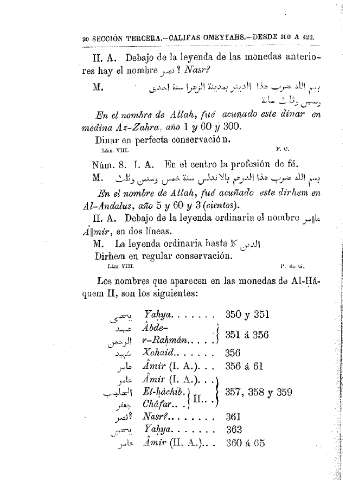 90 SECCIÓN TERCERA.—CALIFAS OMEYYAHS.—DESDE 316 A 422.
II. A. Debajo de la leyenda de las monedas anterio-
res hay el nombre نصر? Nasr?
M. بسم الله ضرب هذا الدينر بمدينة الزهرا سنة احدى
وستين وثلث مائة
En el nombre de Allah, fué acuñado este dinar en
medina Az-Zahra, año 1 y 60 y 300.
Dinar en perfecta conservación.
Lám. VIII. F. C.
Núm. 8. I. A. En el centro la profesión de fé.
M. بسم الله ضرب هذا الدرهم بالاندلس سنة خمس وستين وثلث
En el nombre de Allah, fué acuñado este dirhem en
Al-Andalus, año 5 y 60 y 3 (cientos).
II. A. Debajo de la leyenda ordinaria el nombre عامر
Âmir, en dos líneas.
M. La leyenda ordinaria hasta الدين كلا
Dirhem en regular conservación.
Lám. VIII. P. de G.
Los nombres que aparecen en las monedas de Al-Há-
quem II, son los siguientes:
يحيى Yahya. . . . . . . 350 y 351
عبد Âbde-
الرحمن r-Rahmán. . . . 351 á 356
شهيد Xohaid. . . . . . . 356
عامر Âmir (I. A.). . . 356 á 61
عامر Âmir (I. A.). . .
الحاجب El-háchib. II. . . 357, 358 y 359
جعفر Cháfar. . .
نصر? Nasr?. . . . . . . 361
يحيى Yahya. . . . . . . 363
عامر Âmir (II. A.). . . 360 á 65